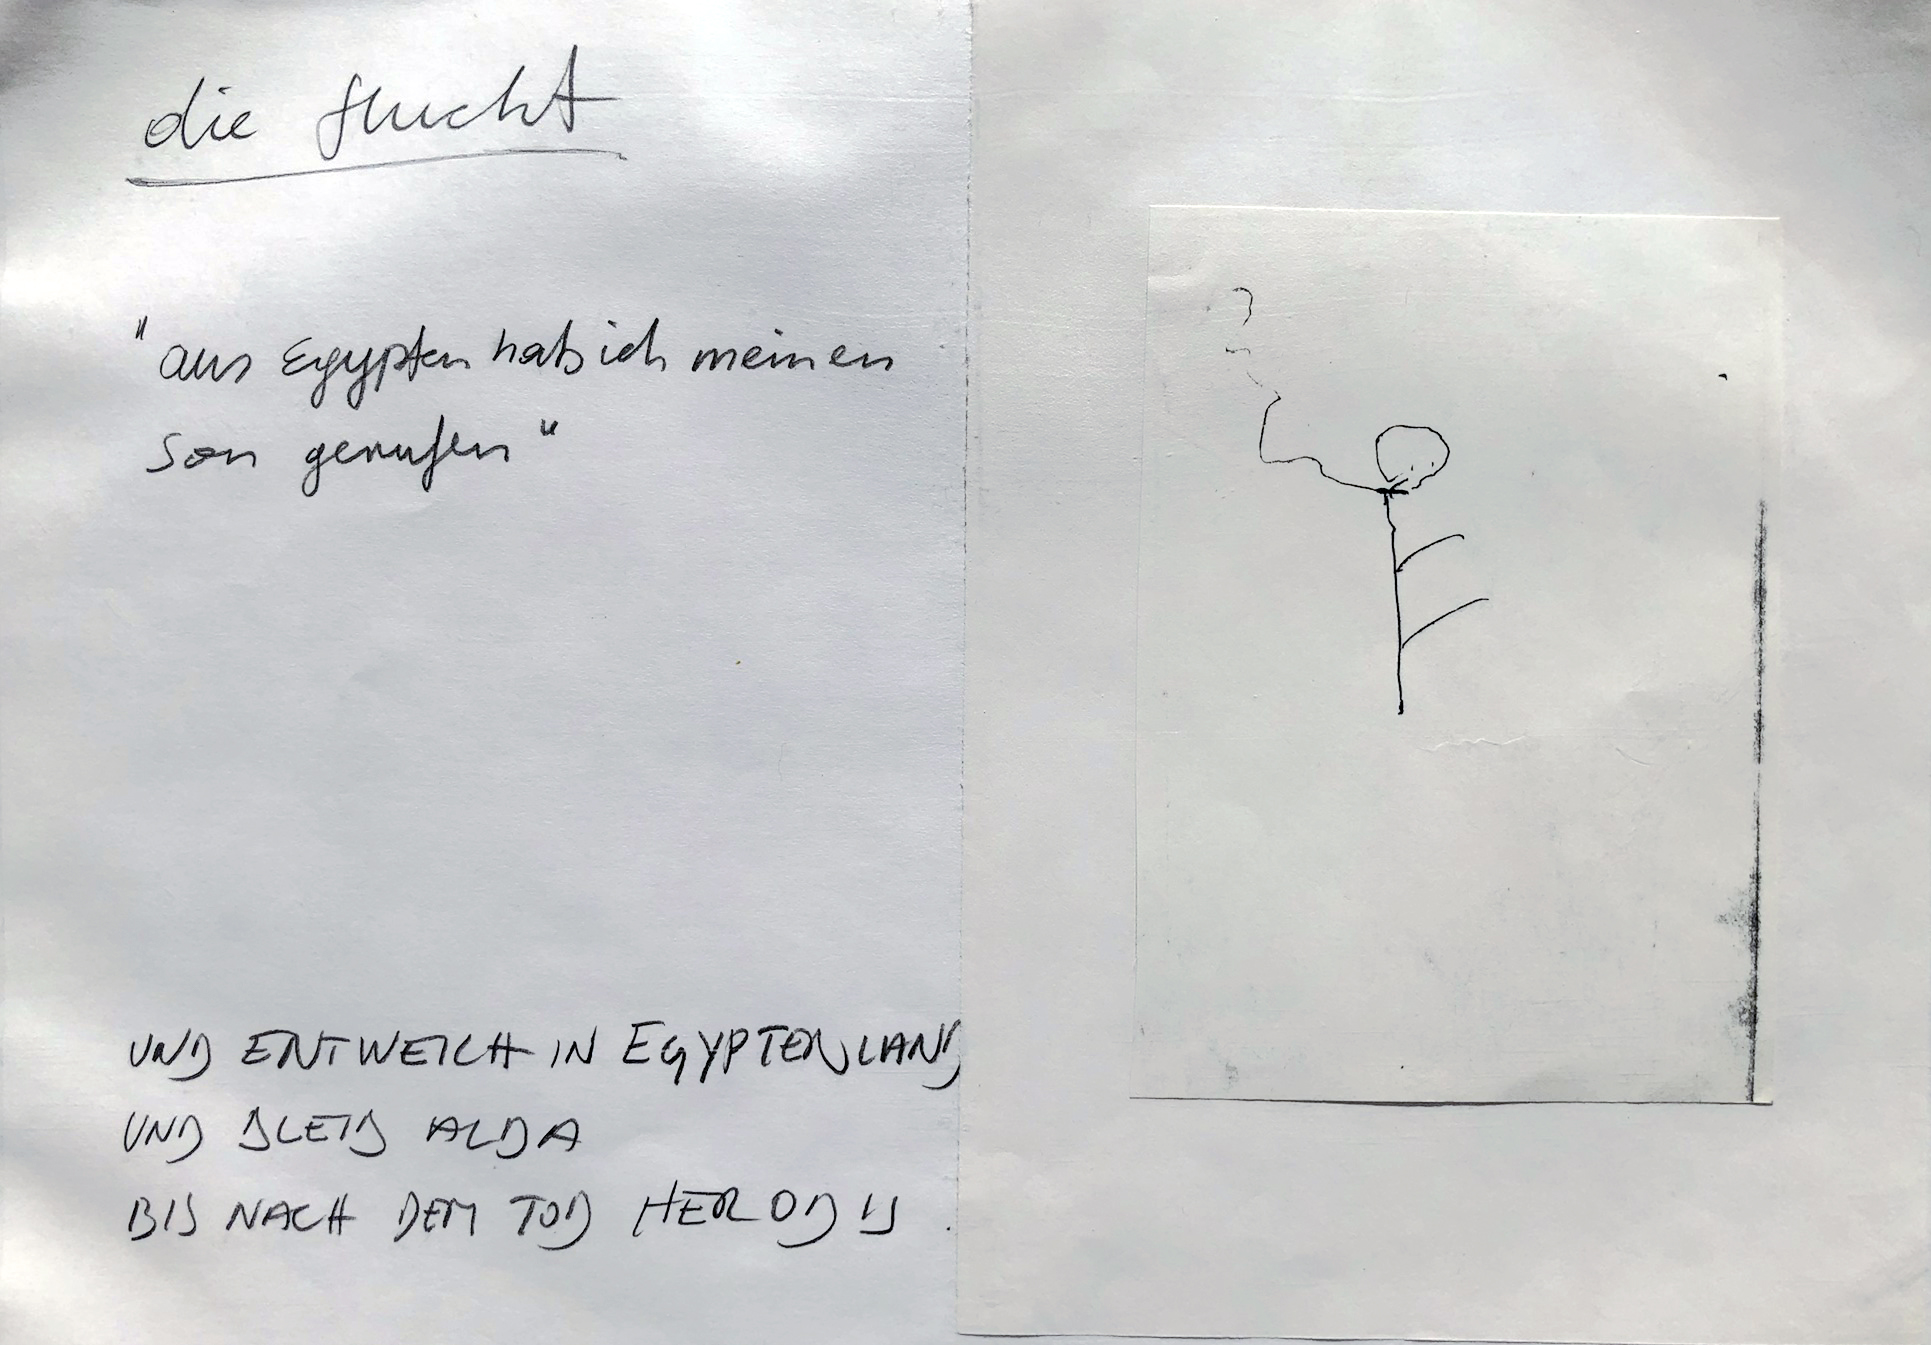 die flucht
"aus Egypten hab ich meinen
son gerufen"
UND ENTWEICH IN EGYPTENLAND
UND BLEIB ALDA
BIS NACH DEM TOD HERODIS.